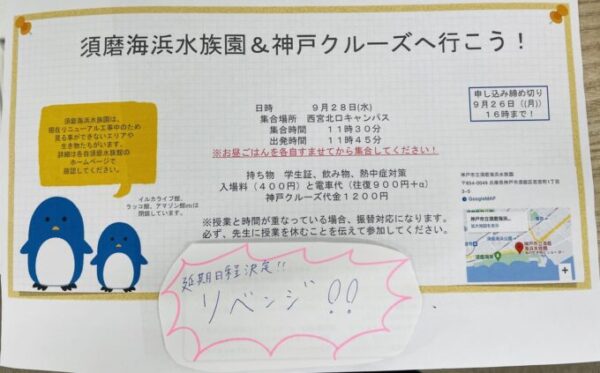 須磨海浜水族園&神戸クルーズへ行こう!
須磨海浜水族園は、
現在リニューアル工事中のため
見る事ができないエリアや
生き物たちがいます。
詳細は各自須磨水族館の
ホームページで
確認してください。
イルカライブ館、
ラッコ館、アマゾン館etcは
閉館しています。
日時 9月28日(水)
集合場所 西宮北口キャンパス
集合時間 11時30分
出発時間 11時45分
※お昼ごはんを各自すませてから集合してください!
持ち物 学生証、飲み物、熱中症対策
入場料(400円)と電車代(往復900円+α)
神戸クルーズ代金1200円
※授業と時間が重なっている場合、振替対応になります。
必ず、先生に授業を休むことを伝えて参加してください。
申し込み締め切り
9月26日((月))
16時まで!
神戸市立須磨海浜水族園
〒654-0049 兵庫県神戸市須磨区若宮町1丁目
3-5
GoogleMAP
神戸市立須磨海浜...
拡大地図を表示
須磨海浜公園
須磨海岸
神戸市立須磨
海浜水族園
延期日程決定!!
リベンジ!!